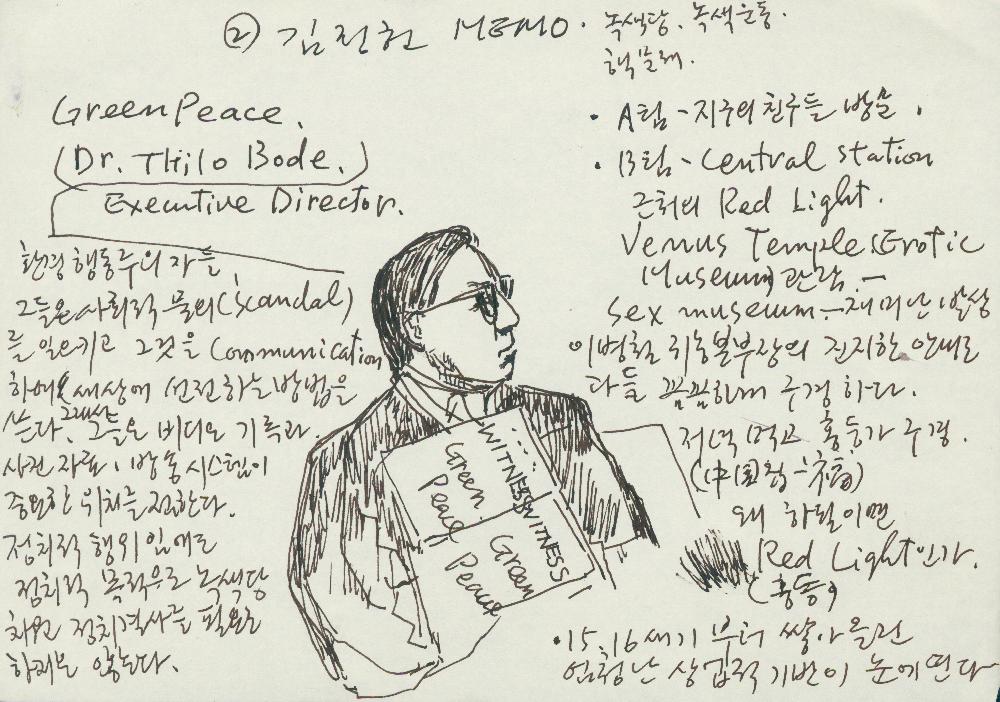 ② 김진현 MEMO.
GreenPeace.
(Dr. Thilo Bode.)
Executive Director.
환경 행동주의자들,
그들은 사회적 물의(Scandal)
를 일으키고 그것을 Communication
하여 세상에 선전하는 방법을
쓴다. 그래서 그들은 비디오 기록과
사진 자료, 방송 시스템이
중요한 위치를 점한다.
정치적 행위임에도
정치적 목적으로 녹색당
차원 정치결사를 필요로
하지는 않는다.
WITNESS WITNESS
Green Peace
Green Peace
녹색당. 녹색운동.
· A팀 - 지구의 친구들 방문.
· B팀 - Central Station
근처의 Red Light.
Venus Temple (Erotic
Museum) 관람. -
Sex museum - 재미난 발상
· 이병철 귀농본부장의 진지한 안내로
다들 꼼꼼하게 구경하다.
저녁 먹고 홍등가 구경.
왜 하필이면
Red Light인가.
(홍등)
· 15, 16세기부터 쌓아올린
엄청난 상업적 기반이 눈에 띈다